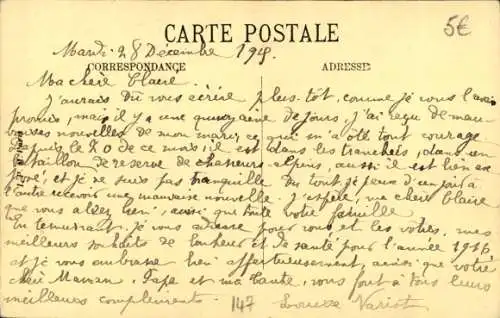 CARTE POSTALE
5€
Mardi 28 Décembre 1915
CORRESPONDANCE
ADRESSE
Ma chère Claire
J'aurais dû vous écrire plus tôt, comme je vous l'avais
promis, mais il y a une quinzaine de jours, j'ai reçu de mau-
vaises nouvelles de mon mari, ce qui m'a ôté tout courage
depuis le 20 de ce mois, il est dans les tranchées, dans un
bataillon de réserve de chasseurs alpins, aussi il est bien ex-
posé, et je ne suis pas tranquille du tout, je peux d'un jour à
l'autre recevoir une mauvaise nouvelle. J'espère, ma chère Claire
que vous allez bien, ainsi que toute votre famille
En terminant, je vous adresse pour vous et les vôtres, mes
meilleurs souhaits de bonheur et de santé pour l'année 1916
et je vous embrasse bien affectueusement, ainsi que votre
chère Maman. Papa et ma tante, vous font à tous leurs
meilleurs compliments.
147
Louise Variot